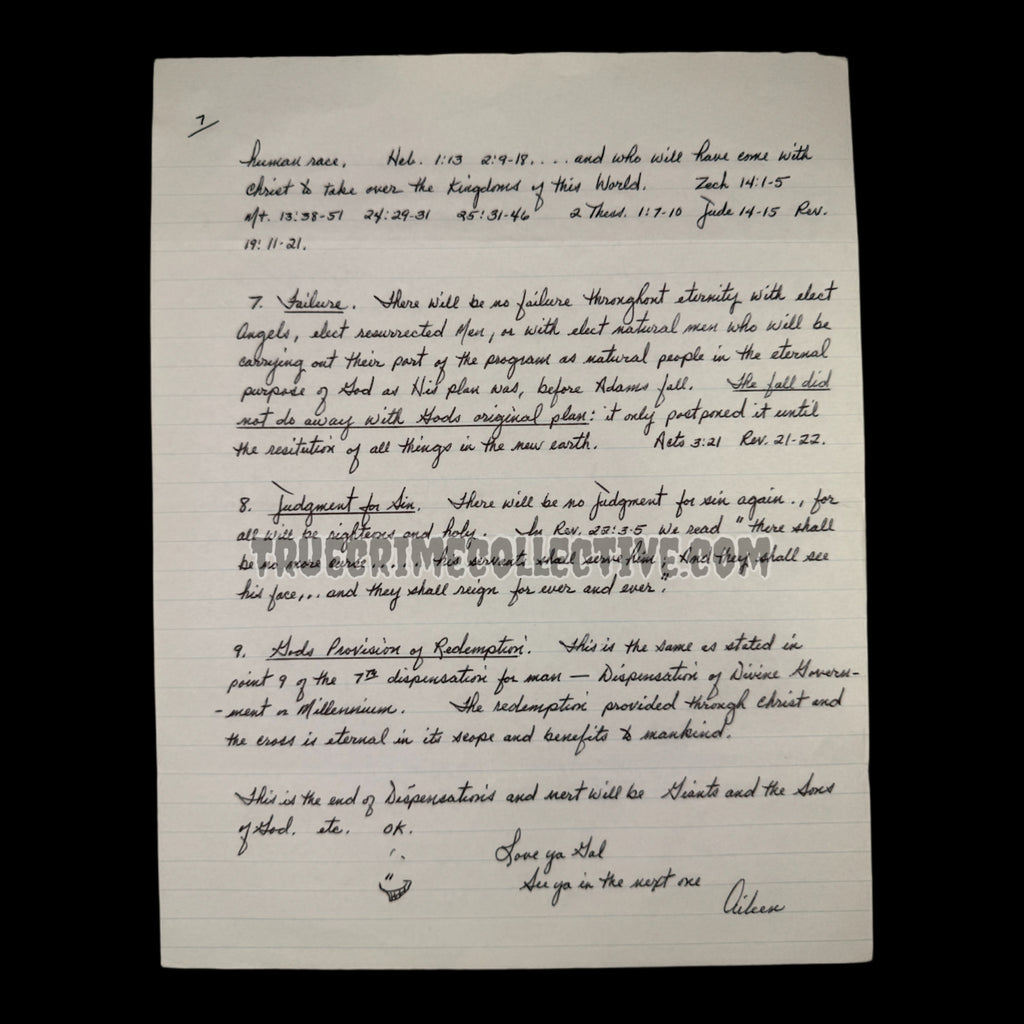 7
human race. Heb. 1:13 2:9-18. . . . and who will have come with
Christ to take over the Kingdoms of this World. Zech 14:1-5
Mt. 13:38-51 24:29-31 25:31-46 2 Thess. 1:7-10 Jude 14-15 Rev.
19:11-21.
7. Failure. There will be no failure throughout eternity with elect
Angels, elect resurrected Men, or with elect natural men who will be
carrying out their part of the program as natural people in the eternal
purpose of God as His plan was, before Adams fall. The fall did
not do away with Gods original plan: it only postponed it until
the resitution of all things in the new earth. Acts 3:21 Rev. 21-22.
8. Judgment for Sin. There will be no Judgment for sin again., for
all will be righteous and holy. In Rev. 22:3-5 we read " there shall
TRUECRIMECOLLECTIVE.COM
be no more curse..... his servants shall serve him; And they shall see
his face,.. and they shall reign for ever and ever".
9. Gods Provision of Redemption. This is the same as stated in
point 9 of the 7th dispensation for man — Dispensation of Divine Govern-
-ment or Millennium. The redemption provided through Christ and
the cross is eternal in its scope and benefits to mankind.
This is the end of Dispensations and next will be Giants and the Sons
of God. etc. OK.
Love ya Gal
See ya in the next one
Aileen